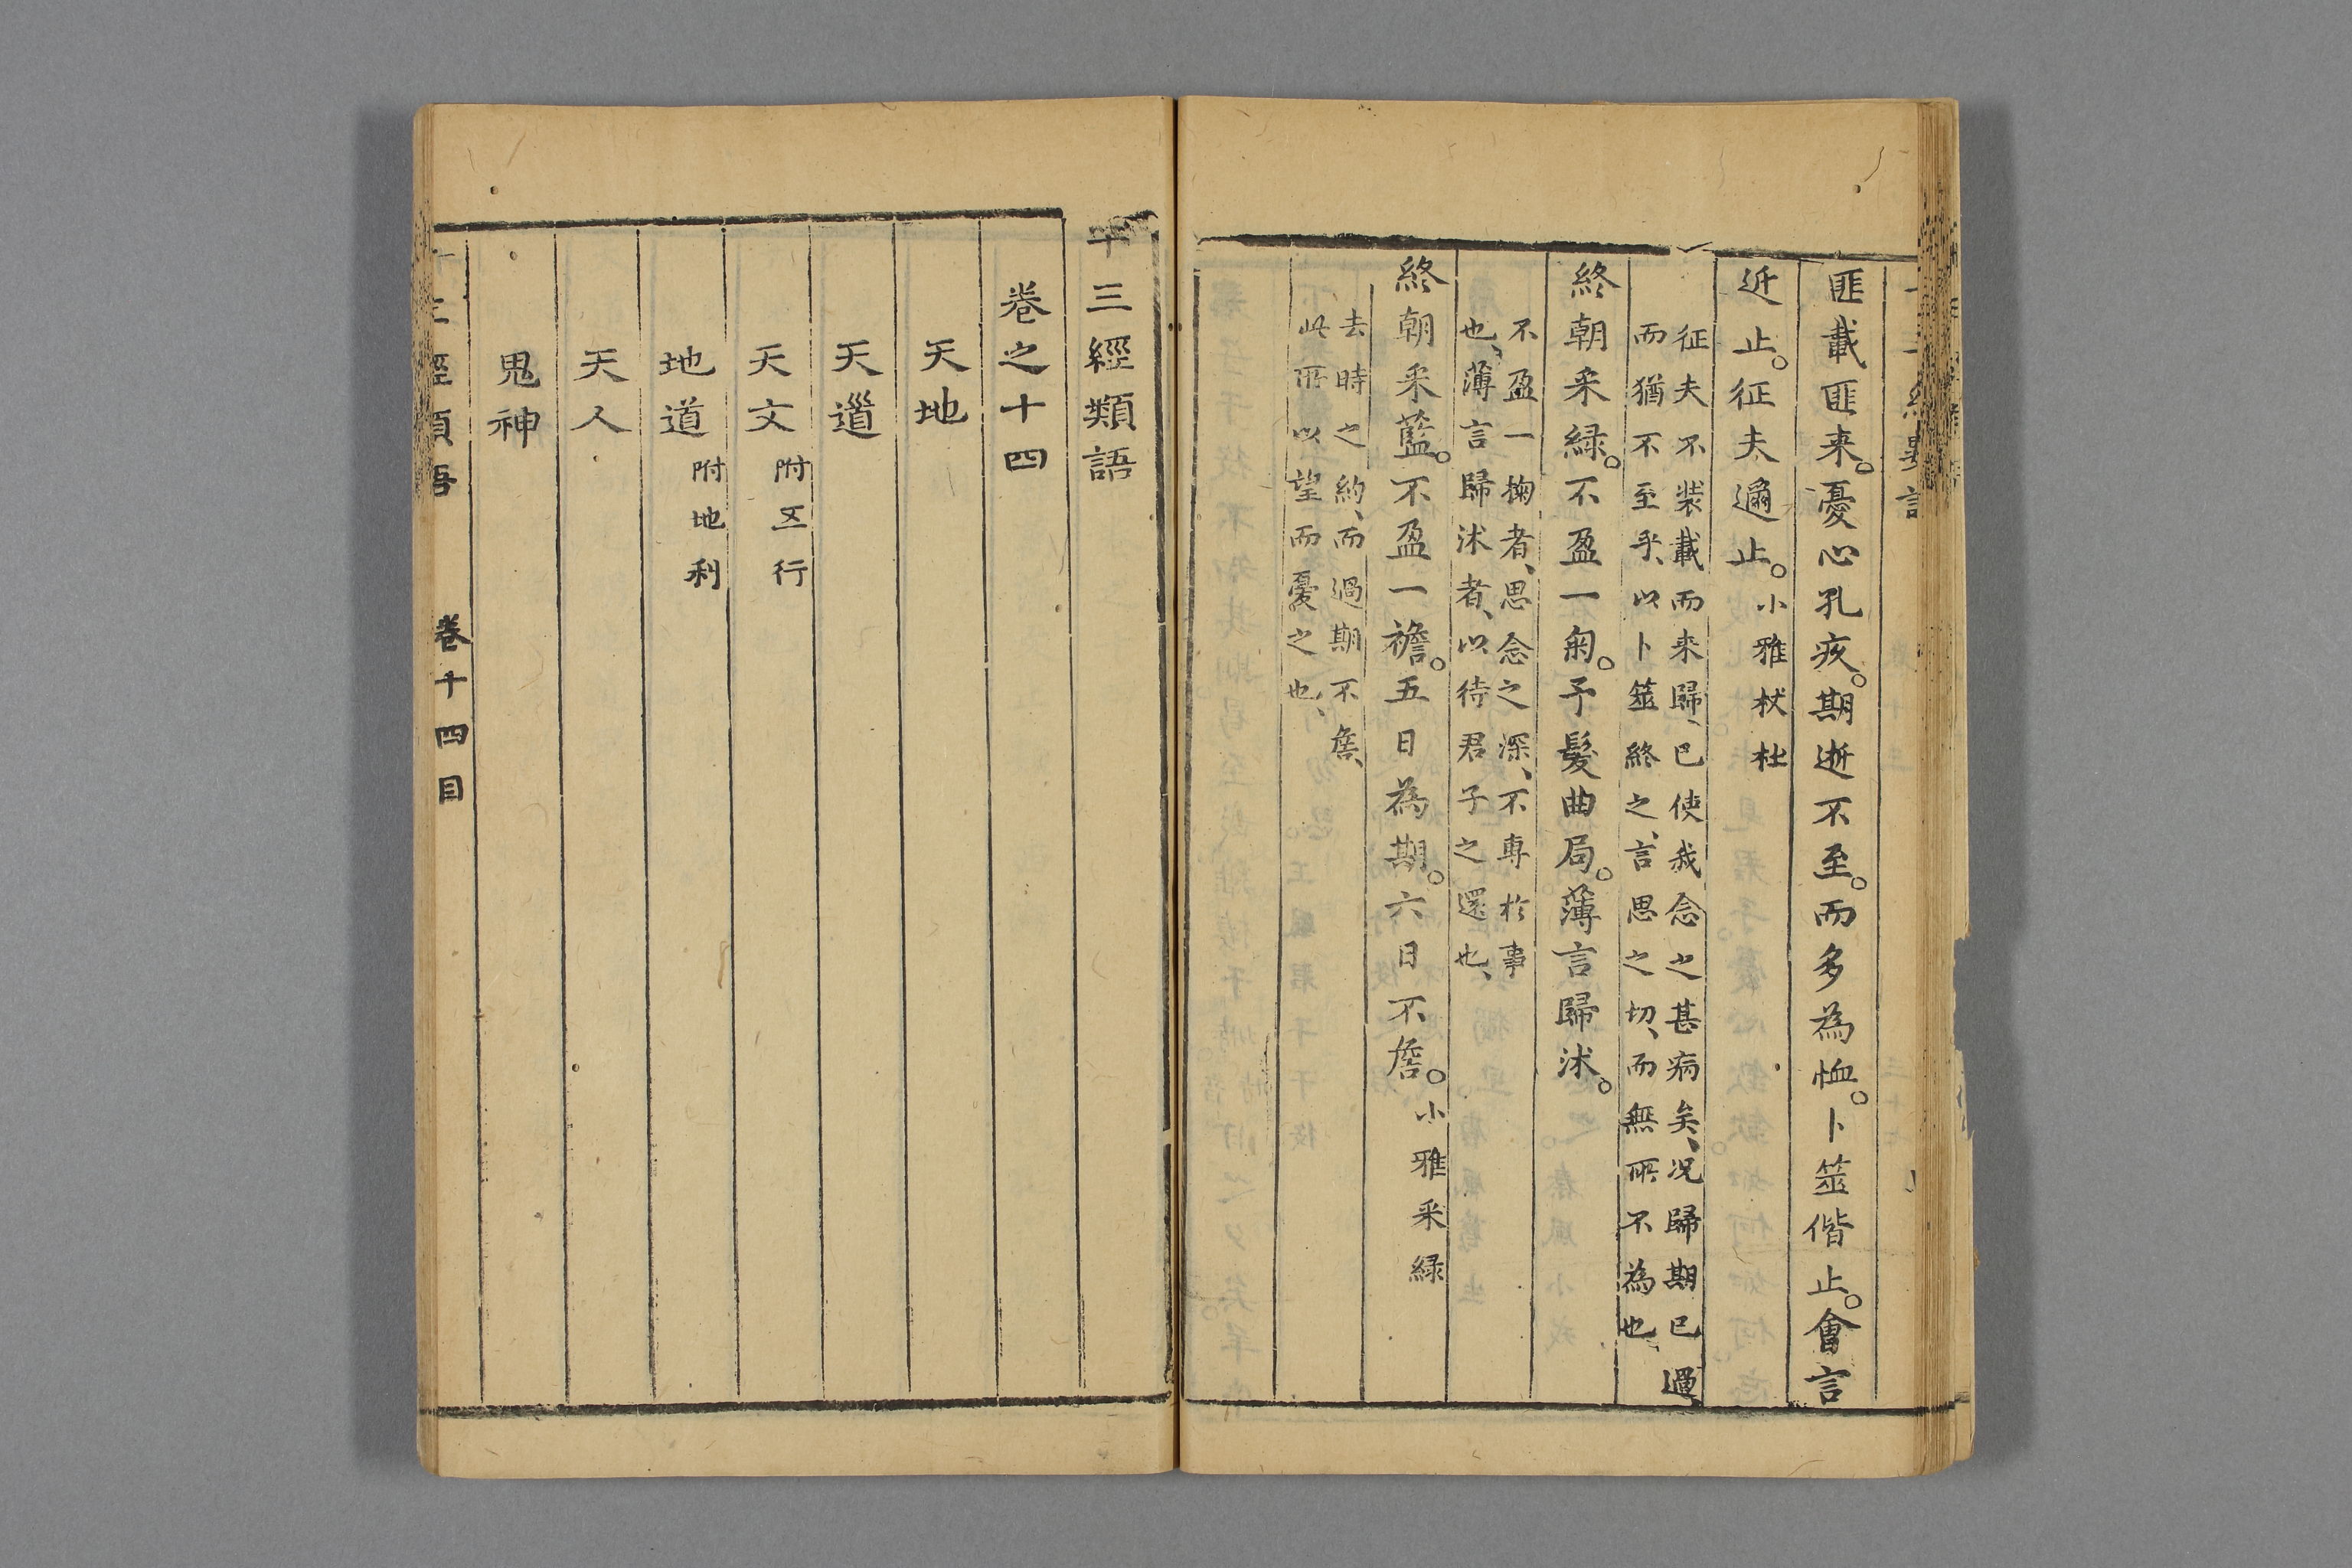 匪載匪来。憂心孔疚。期逝不至。而多為恤。卜筮偕止。會言
近止。征夫邇止。小雅杕杜
征夫不装載而来歸、已使我念之甚病矣、况歸期已過
而猶不至乎、以卜筮終之、言思之切、而無所不為也
終朝采緑。不盈一匊。予髮曲局。薄言歸沐。
不盈一掬者、思念之深、不專於事
也、薄言歸沐者、以待君子之還也、
終朝采藍。不盈一襜。五日為期。六日不詹。小雅采緑
去時之約、而過期不詹、
此所以望而憂之也、
十三經類語
卷之十四
天地
天道
天文附五行
地道附地利
天人
鬼神
十三經類語 卷十四目